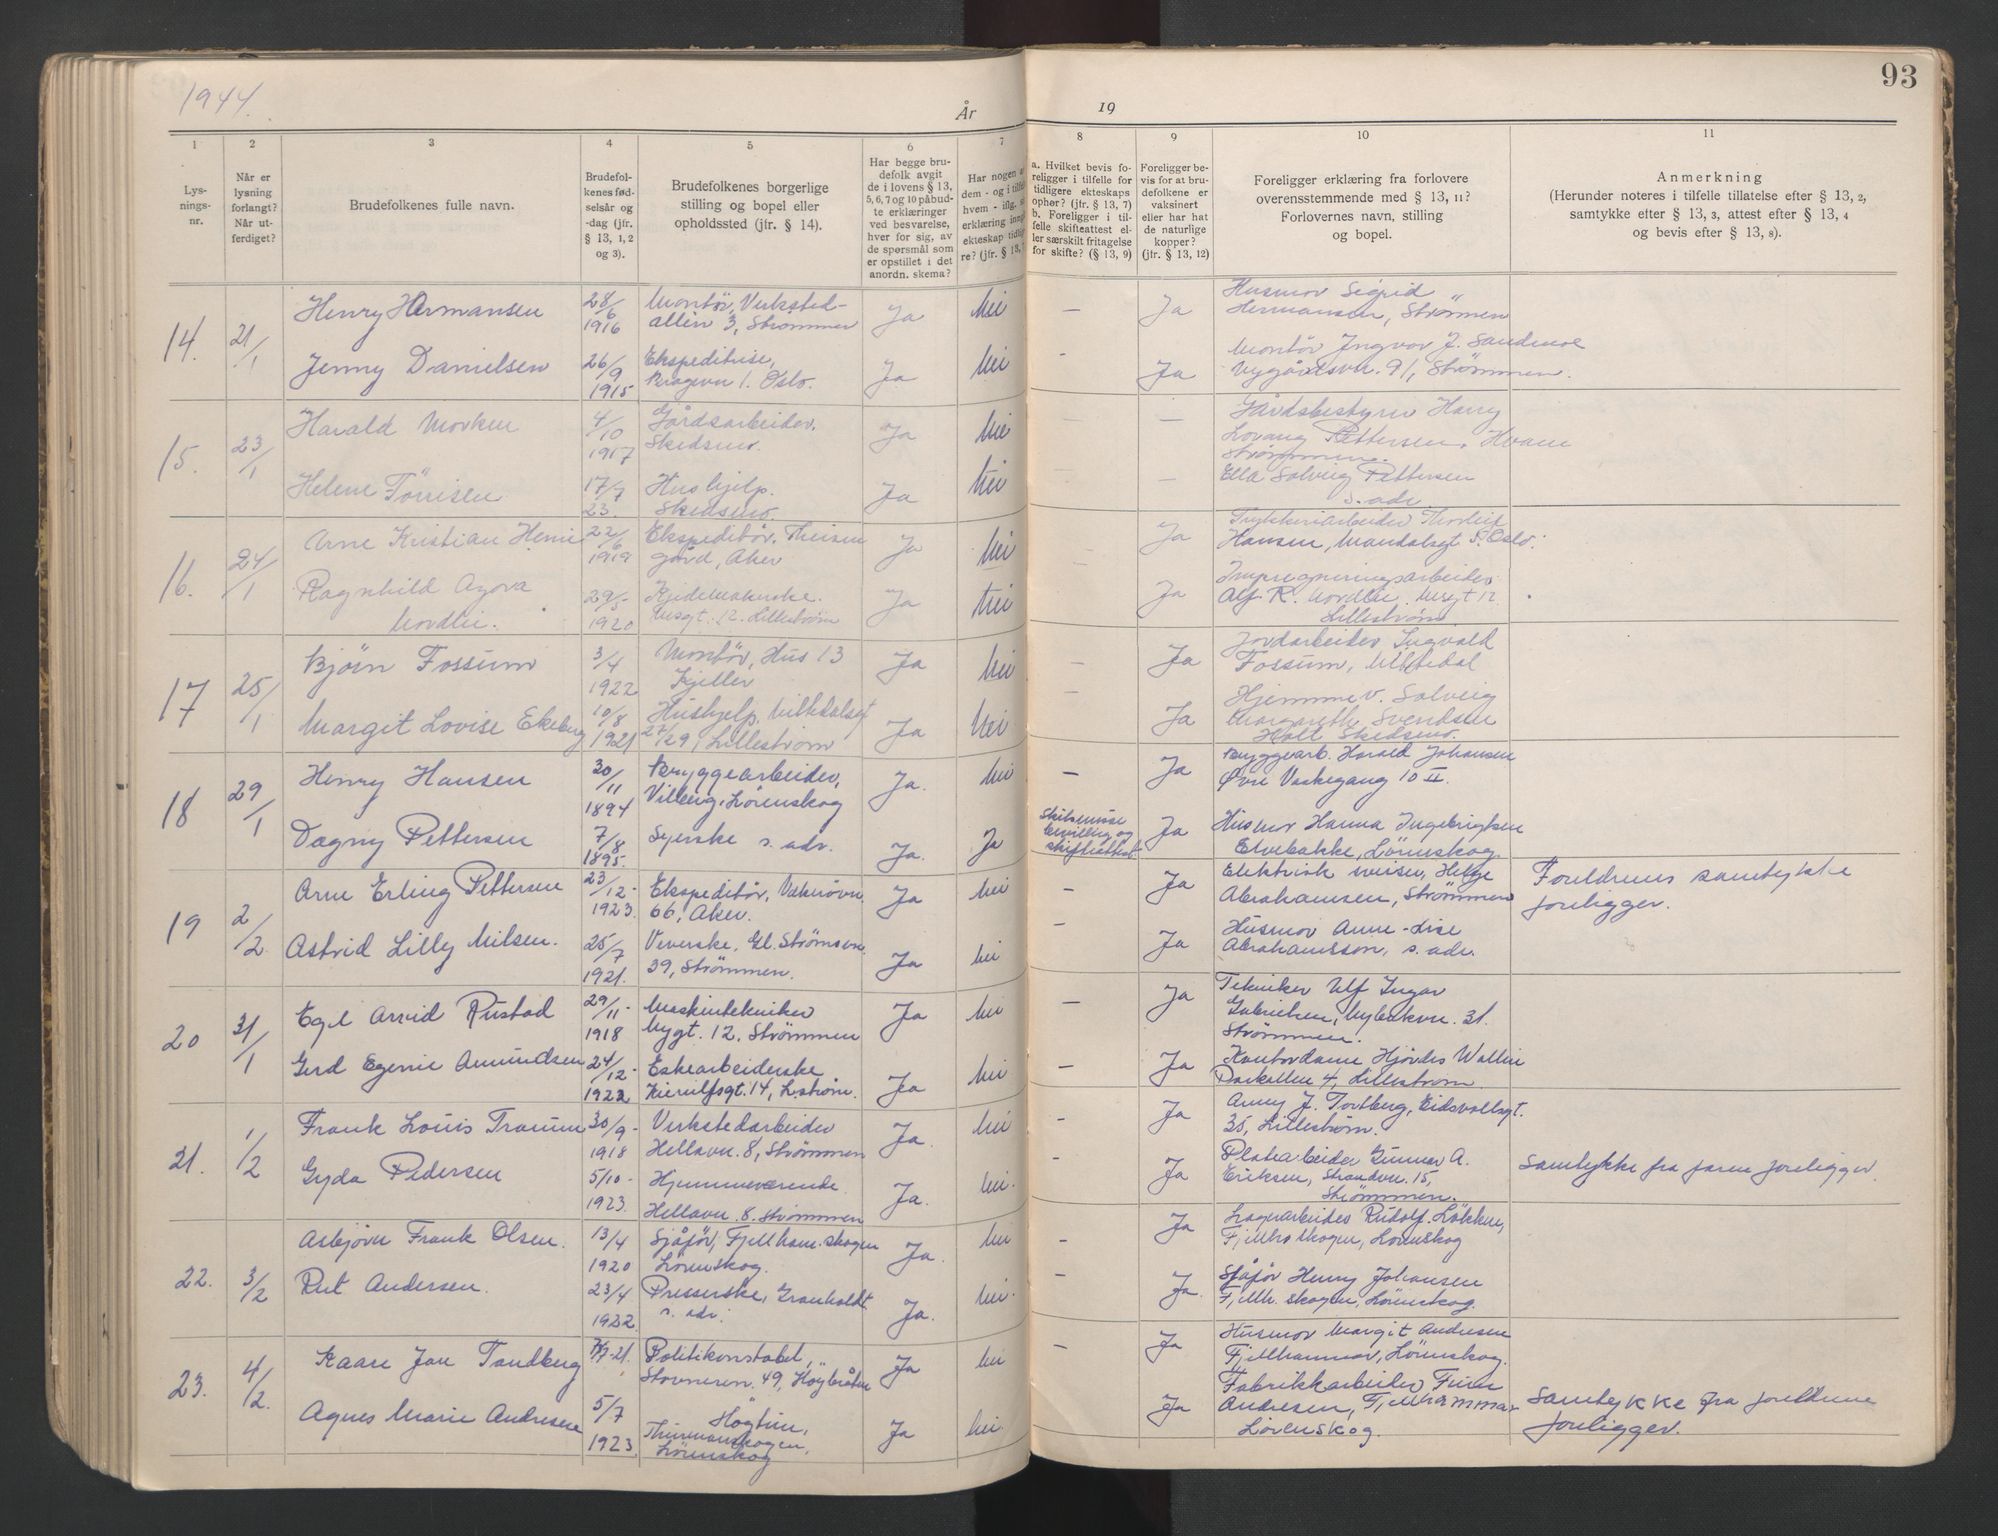 93
1944.
År
19
1
2
3
4
5
6
7
8
9
10
11
Lys-
nings-
nr.
Når er
lysning
forlangt?
Når ut-
ferdiget?
Brudefolkenes fulle navn.
Brudefol-
kenes fød-
selsår og
-dag (jfr.
§ 13, 1, 2
og 3).
Brudefolkenes borgerlige
stilling og bopel eller
opholdssted (jfr. § 14).
Har begge bru-
defolk avgit
de i lovens § 13,
5, 6, 7 og 10 påbud-
te erklæringer
ved besvarelse,
hver for sig, av
de spørsmål som
er opstillet i det
anordn. skema?
Har nogen a
dem - og i tilfel
hvem - iflg. s
erklæring inng
ekteskap tidlig
re? (jfr. § 13,
a. Hvilket bevis fo-
religger i tilfelle for
tidligere ekteskaps
ophør? (jfr. § 13, 7)
b. Foreligger i til-
felle skifteattest el-
ler særskilt fritagelse
for skifte? (§ 13, 9)
Foreligger be-
vis for at bru-
defolkene er
vaksinert
eller har hat
de naturlige
kopper?
(jfr. § 13, 12)
Foreligger erklæring fra forlovere
overensstemmende med § 13, 11?
Forlovernes navn, stilling
og bopel.
Anmerkning
(Herunder noteres i tilfelle tillatelse efter § 13, 2,
samtykke efter § 13, 3, attest efter § 13, 4
og bevis efter § 13, 8).
14. 21/1
Henry Hermansen
28/6 1916
Montör, Verksted-
allèn 3, Strømmen
Ja
Nei
—
Ja
Husmor Sigrid
Hermansen, Strömmen
Jenny Danielsen
26/9 1915
Ekspeditrise,
1. Oslo.
Ja
Nei
-
Ja
Montör Ingvar J. Sandmoe
Nygårdsvn. 91, Strömmen.
15. 23/1
Harald Morken
4/10 1917
Gårdsarbeider,
Skedsmo.
Ja
Nei
—
—
Gårdsbestyrer Harry
Pettersen, Hvam
Strømmen.
Helene Törrisen
17/7 23.
Hushjelp.
Skedsmo.
Ja
Nei
—
—
Ella Solveig Pettersen
s. adr
16. 24/1
Arne Kristian Henie
22/6 1919
Ekspeditör, Theisen
gård, Aker
Ja
Nei
—
Ja
Trykkeriarbeider Thorleif
Hansen, Mandalsgt 5. Oslo.
Ragnhild Agova
Nordlie.
29/5 1920
Kjedemakerske.
12. Lillestrøm
Ja
Nei
—
Ja
Impregneringsarbeider
Alf R. Nordlie 12
Lillestrøm
17 25/1
Bjørn Fossum
3/4 1922
Montör, Hus 13
Kjeller
Ja
Nei
—
Ja
Jordarbeider Ingvald
Fossum,
Margit Lovise Ekeberg
10/8 1921
Hushjelp,
27/29, Lillestrøm
Ja
Nei
—
Ja
Hjemmev. Solveig
Margareth Svendsen
Holt Skedsmo.
18 29/1
Henry Hansen
30/11 1894
Bryggearbeider,
Lörenskog
Ja.
Nei
—
Ja
Byggearb. Harald Johansen
Øvre Vaskegang 10 II.
Dagny Pettersen
7/8 1895.
Syerske s. adr.
Ja.
Ja
Skilsmisse
bevilling og
skifteattest.
Ja
Husmor Hanna Ingebrigtsen
Elvebakke, Lörenskog.
19 2/2
Arne Erling Pettersen
23/12 - 1923.
Ekspeditör,
66, Aker.
Ja
Nei
—
Ja
Elektrisk sveiser, Helge
Abrahamsen, Strömmen
Foreldrenes samtykke
foreligger.
Astrid Lilly Nilsen.
25/7 1921.
Veverske, Gl. Strömsvn.
39, Strömmen.
Ja
Nei
—
Ja
Husmor Anne-Lise
Abrahamsson, s. adr.
20 31/1
Egil Arvid Rustad
29/11 - 1918
Maskintekniker
Nygt. 12, Strömmen
Ja
Nei
—
Ja
Tekniker Ulf Ingar
Gabrielsen, 31.
Strömmen.
Gerd Egenie Amundsen
24/12 - 1922
Eskearbeiderske
Kierulfsgt. 14, L.ström.
Ja
Nei
—
Ja
Kontordame Hjördis Wallin
Parkallen 4, Lillestrøm.
21. 1/2
Frank Louis Traum
30/9 - 1918
Verkstedarbeider
Hellavn. 8, Strömmen
Ja.
Nei
-
Ja
Anny J. Tortberg, Eidsvollsgt.
35, Lillestrøm.
Gyda Pedersen
5/10 - 1923.
Hjemmeværende
Hellavn. 8. Strömmen
Ja.
Nei.
-
Ja
Platearbeider Gunnar A.
Eriksen, Strandvn. 15,
Strömmen.
Samtykke fra faren foreligger.
22. 3/2
Asbjørn Frank Olsen.
13/4 1920
Sjåför, Fjellham. skogen
Lörenskog.
Ja.
Nei
-
Ja
Lagerarbeider Rudolf Lökken,
Fjellha skogen, Lorenskog
Rut Andersen.
23/4 1922
Presserske, Granholdt
s. adr.
Ja.
Nei.
-
Ja.
Sjåför Henry Johansen
Fjellh. skogen, Lörenskog.
23. 4/2
Kaare Jan Tandberg
7-21.
Politikonstabel,
49, Höybråten
Ja
Nei
—
Ja
Husmor Margit Andresen
Fjellhammer, Lörenskog.
Agnes Marie Andresen
5/7 1923.
Högtun,
Lörenskog
Ja
Nei.
Ja
Fabrikkarbeider Finn
Andresen, Fjellhammar
Lörenskog.
Samtykke fra foreldrene
foreligger.